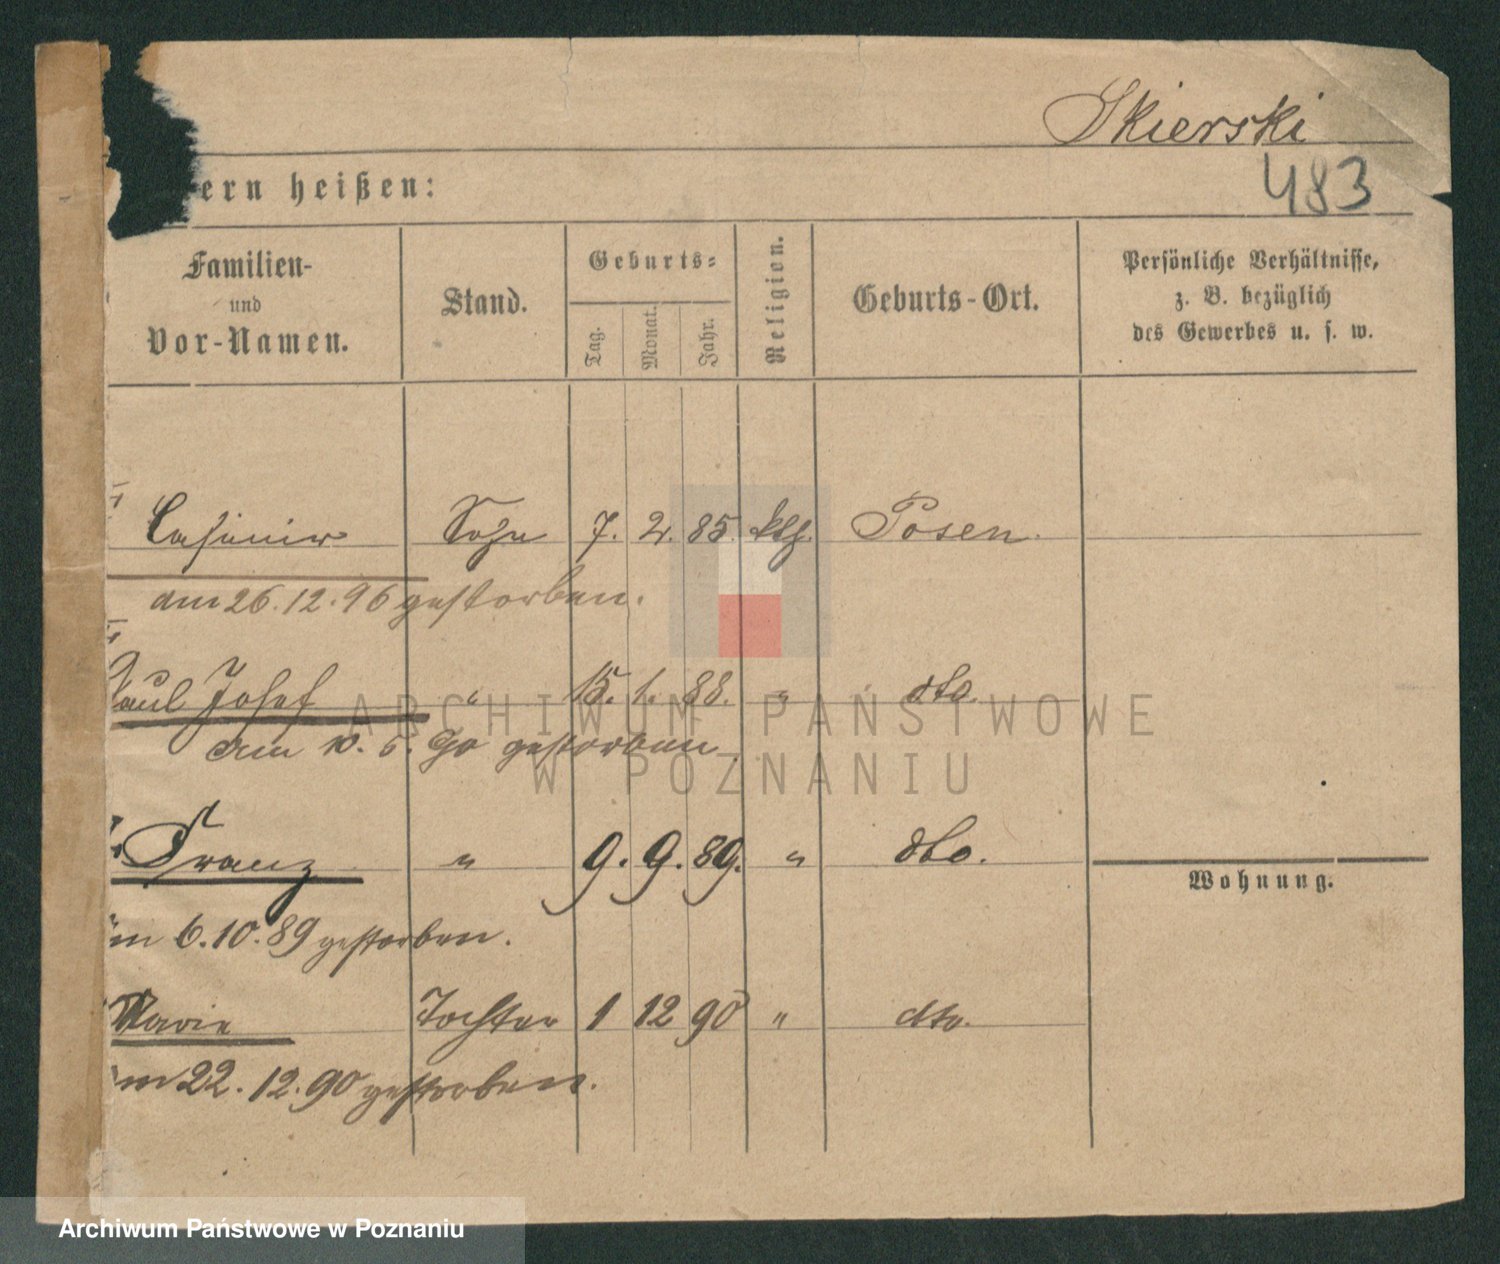 Skierski
483
ern heißen:
Familien-
und
Vor-Namen.
Stand.
Geburts-
Tag.
Monat.
Jahr.
Religion.
Geburts-Ort.
Persönliche Verhältnisse,
z. B. bezüglich
des Gewerbes u. s. w.
Casimir Sohn 7. 2. 85. ktg. Posen.
am 26.12.96 gestorben.
Paul Josef " 15. 1. 88. " dto.
am 10. 5. 90 gestorben.
Franz " 9. 9. 89. " dto.
Wohnung.
am 6.10.89 gestorben.
Marie Tochter 1 12 90 " dto.
am 22.12.90 gestorben.
ARCHIWUM PAŃSTWOWE
W POZNANIU
Archiwum Państwowe w Poznaniu